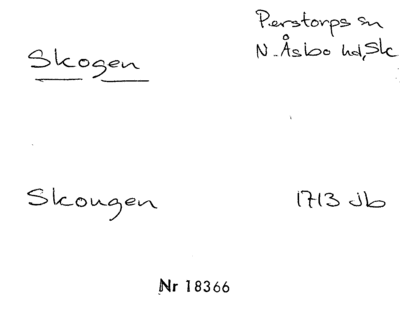 Perstorps sn
Skogen N. Åsbo hd, Sk
Skougen 1713 Jb
Nr 18366